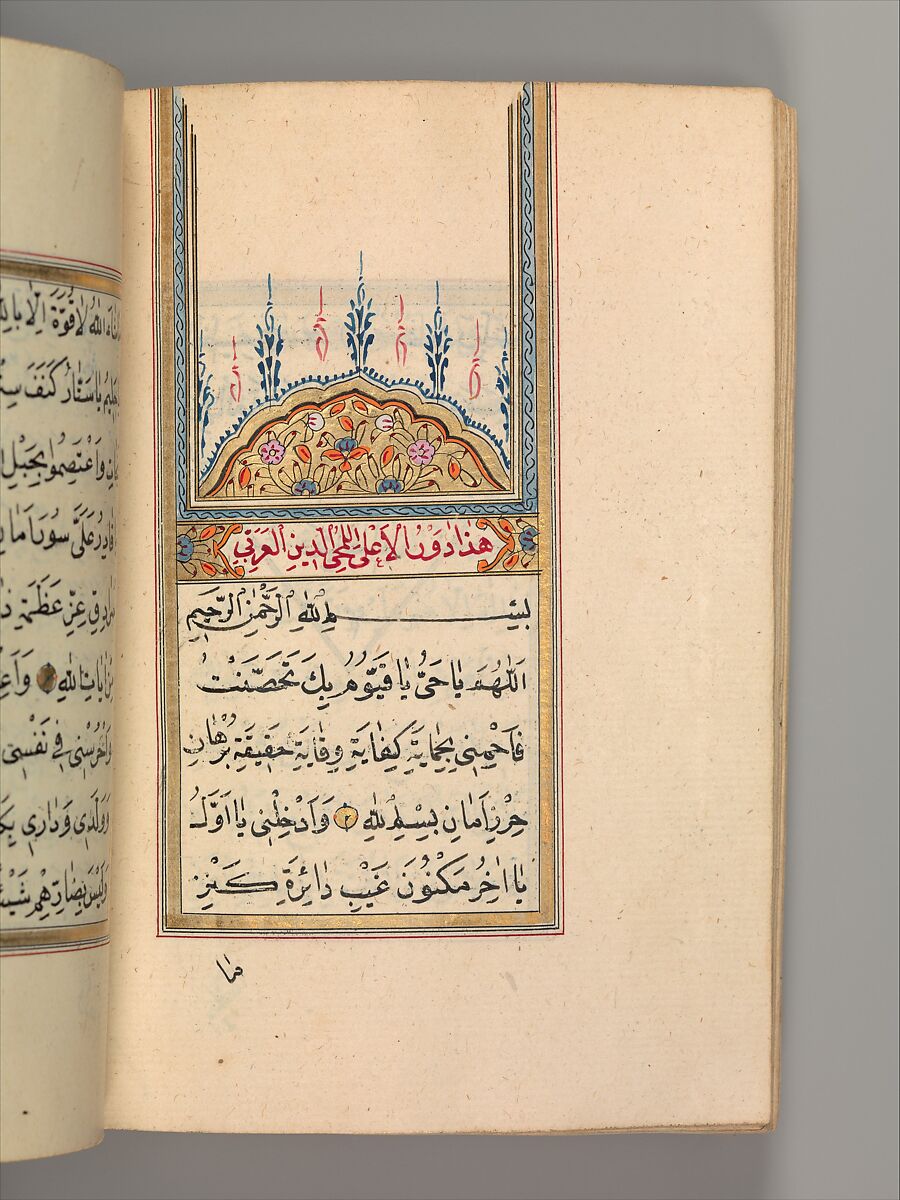 هذا دور الأعلى للمحي الدين العربي
بسم الله الرحمن الرحيم
اَللّٰهُمَّ يَا حَىُّ يَا قَيُّومُ بِكَ تَحَصَّنْتُ
فَاَحْمِنِى بِحِمَايَةِ كِفَايَةِ وِقَايَةِ حَقِيقَةِ بُرْهَانِ
حِرْزِ اَمَانِ بِسْمِ اللهِ وَاَدْخِلْنِى يَا اَوَّلُ
يَا اٰخِرُ مَكْنُونَ غَيْبِ دَائِرَةِ كَنْزِ
الله لَا قُوَّةَ اِلَّا بِالله
يَا سَتَّارُ كَنَفَ
وَاعْتَصِمُوا بِحَبْلِ
قَادِرُ عَلَىَّ سُورَ اَمَانِ
عِزِّ عَظَمَةِ
اٰيَاتِ اللهِ
وَاحْرُسْنِى فِى نَفْسِى
وَوَلَدِى وَدَارِى
وَلَيْسَ بِضَارِّهِمْ شَيْئًا